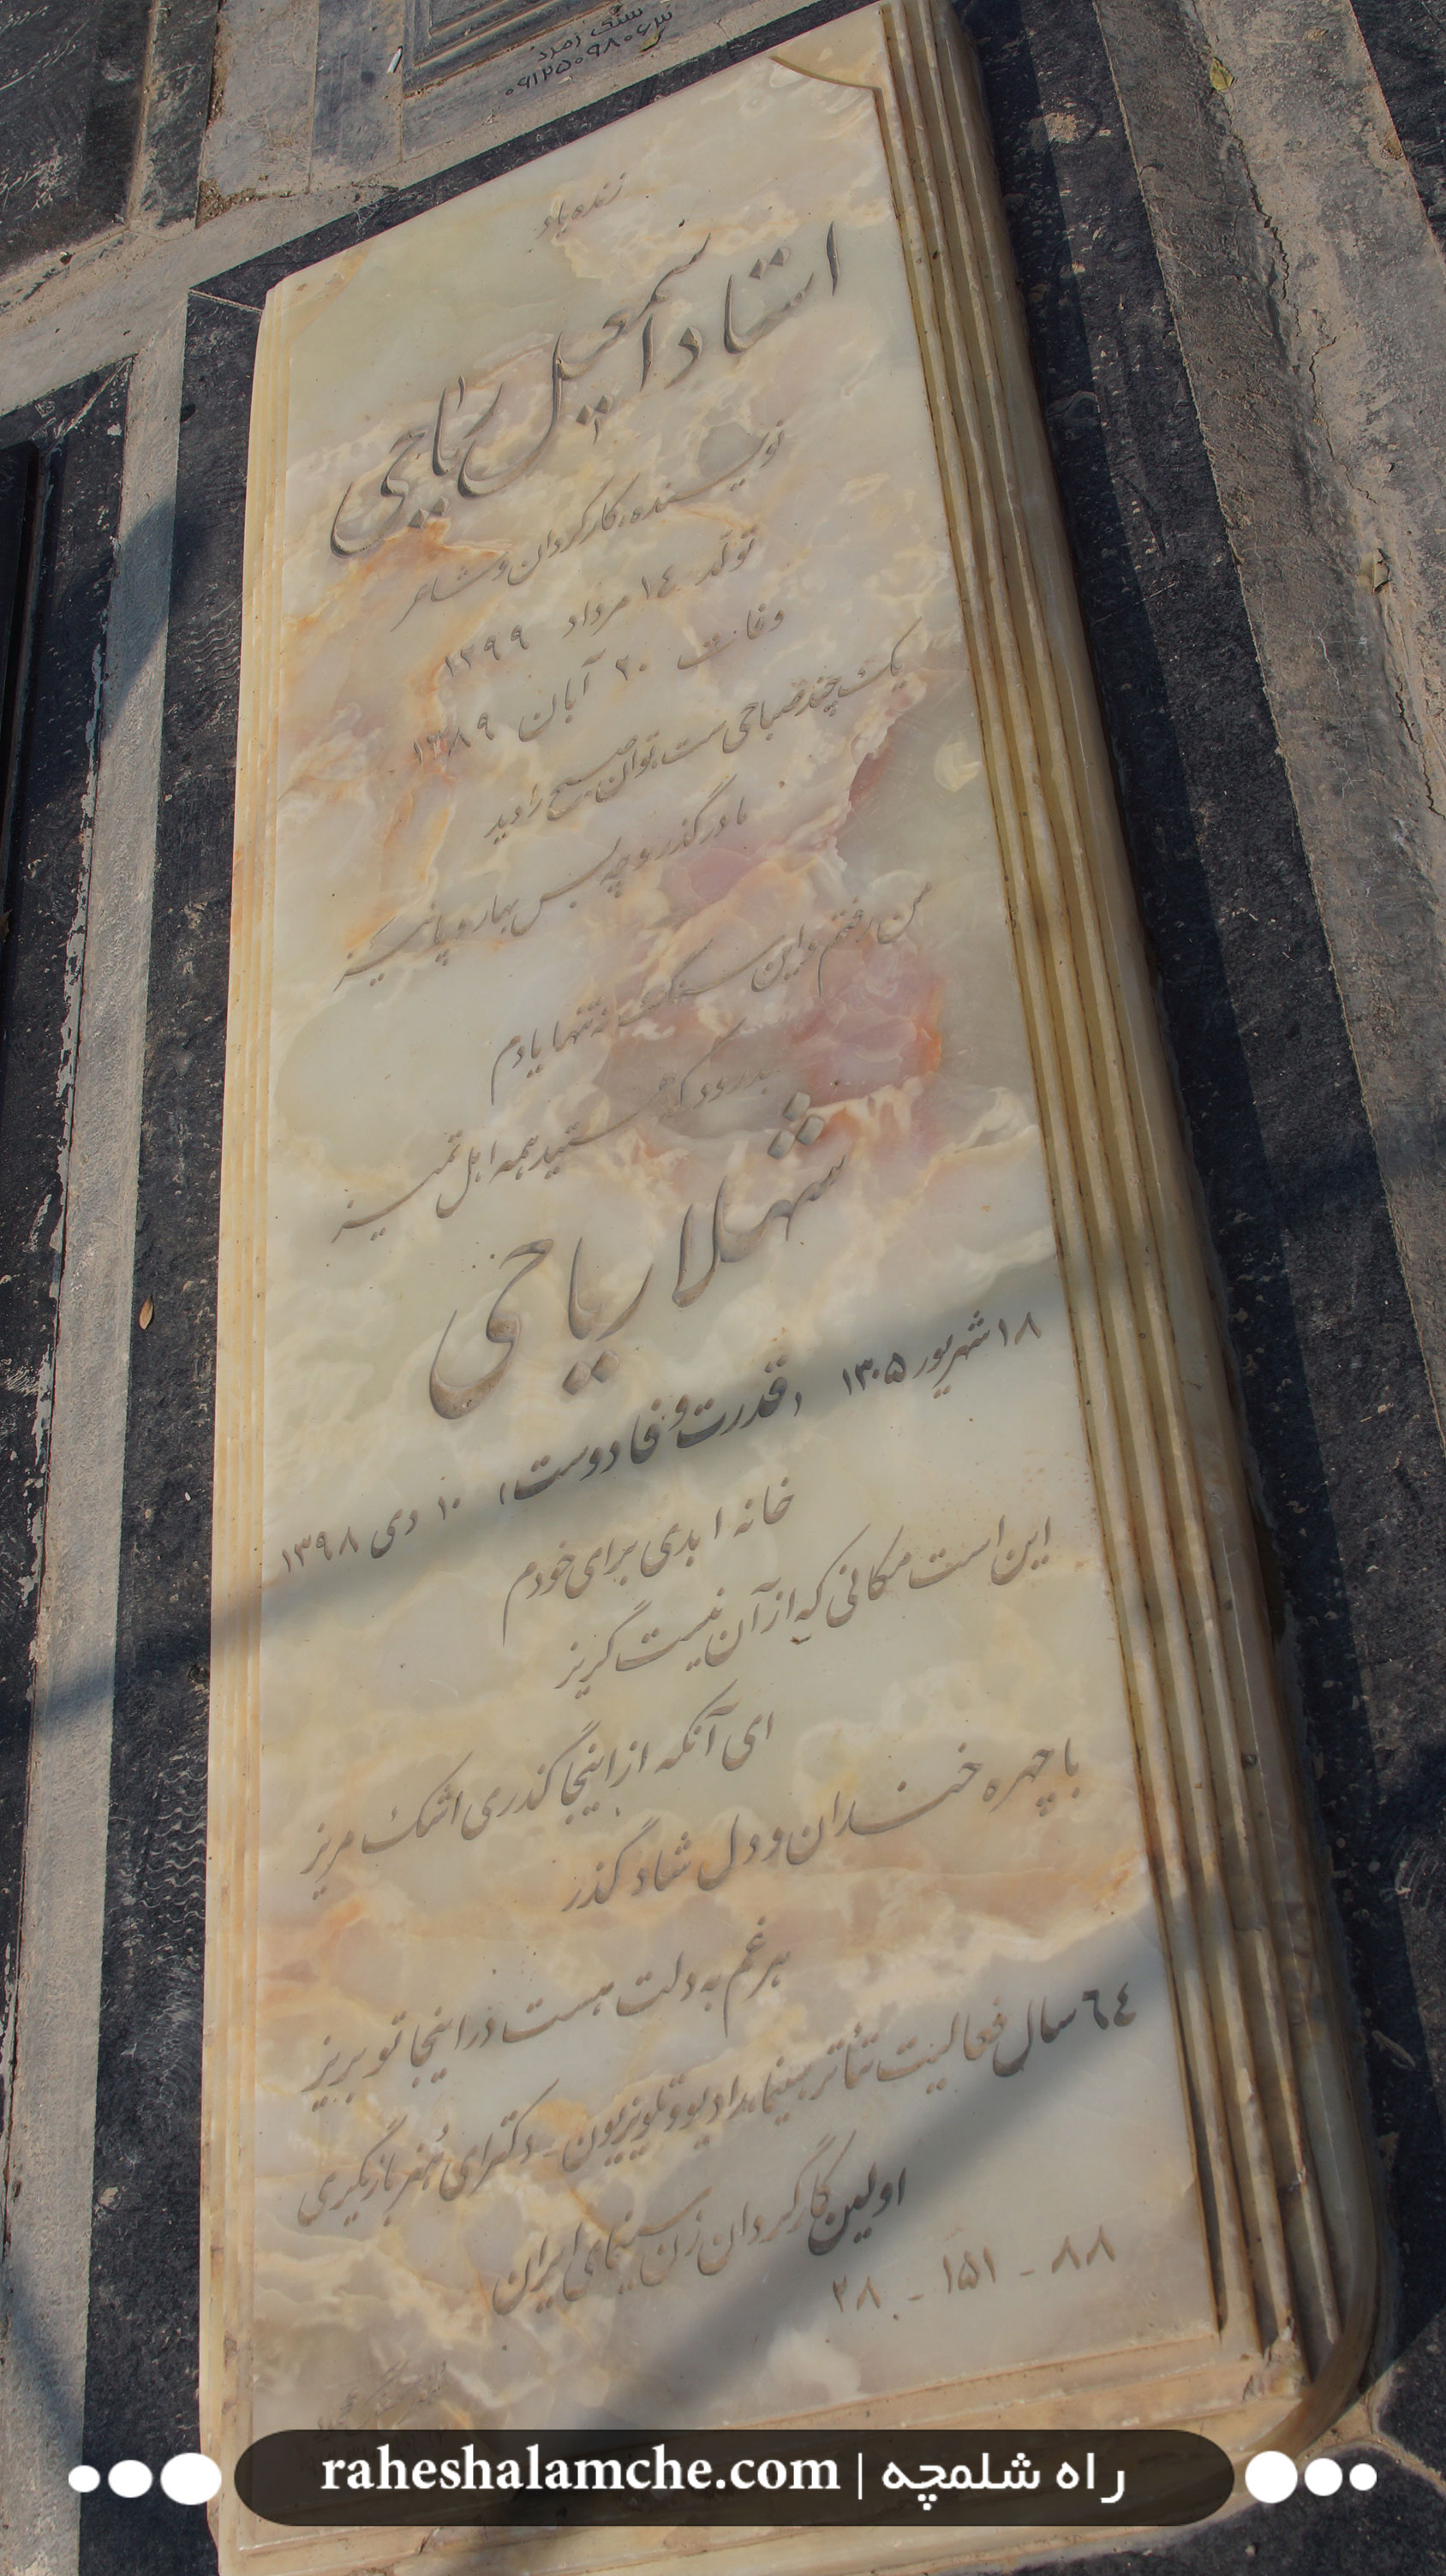 سنگ زمرد
۰۹۱۲۵۰۹۸۰۶۳
زنده یاد
استاد اسمعیل ریاحی
نویسنده، کارگردان و شاعر
تولد ۱٤ مرداد ۱۲۹۹
وفات ۲۰ آبان ۱۳۸۹
یک چند صباحی ست توان صبح را دید
ما درگذر و چه بس بهار و پائیز
من رفتم و این سنگ نه تنها یادم
بدرود که هستید همه اهل تمیز
شهلا ریاحی
۱۸ شهریور ۱۳۰۵ (قدرت وفادوست) ۱۰ دی ۱۳۹۸
خانه ابدی برای خودم
این است مکانی که از آن نیست گریز
ای آنکه از اینجا گذری اشک مریز
با چهره خندان و دل شاد گذر
هر غم به دلت هست در اینجا تو بریز
٦٤ سال فعالیت تئاتر، سینما، رادیو و تلویزیون - دکترای هنر بازیگری
اولین کارگردان زن سینمای ایران
۸۸ - ۱۵۱ - ۲۸
راه شلمچه | raheshalamche.com